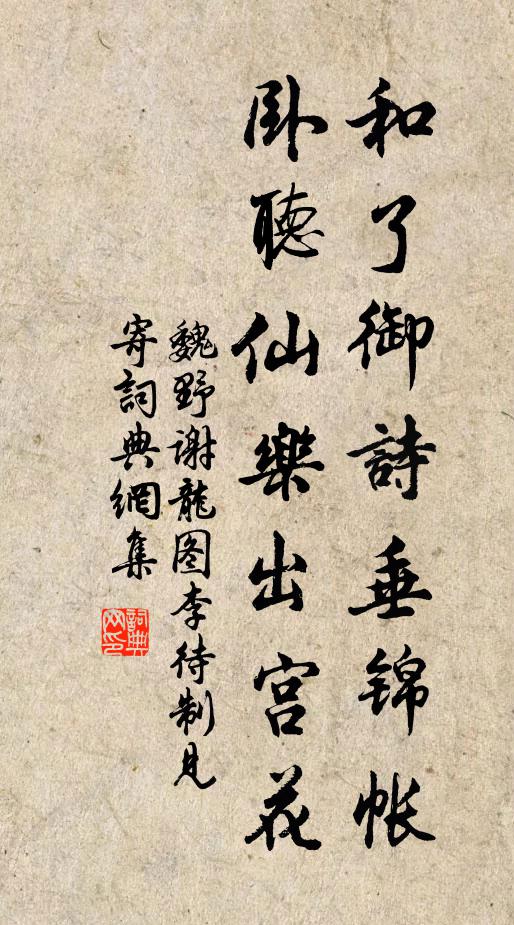 和了御詩垂錦帳
卧聽仙樂出宫花
魏野谢龍图李待制見
寄詞典網集
詞典
网印